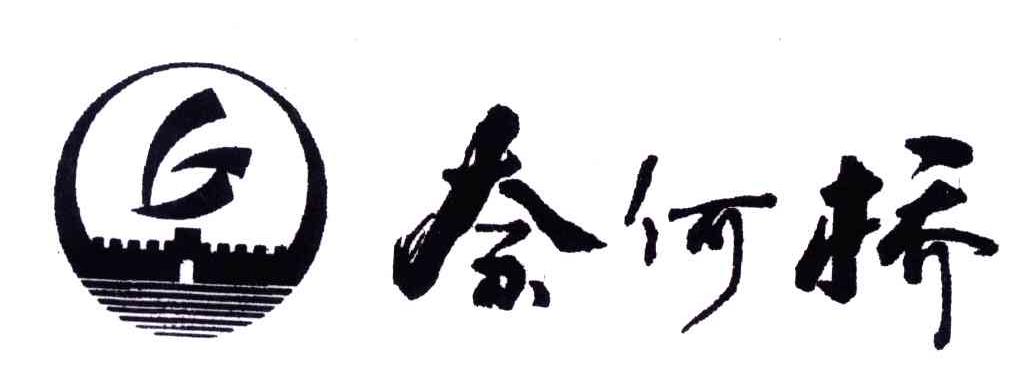 奈何桥